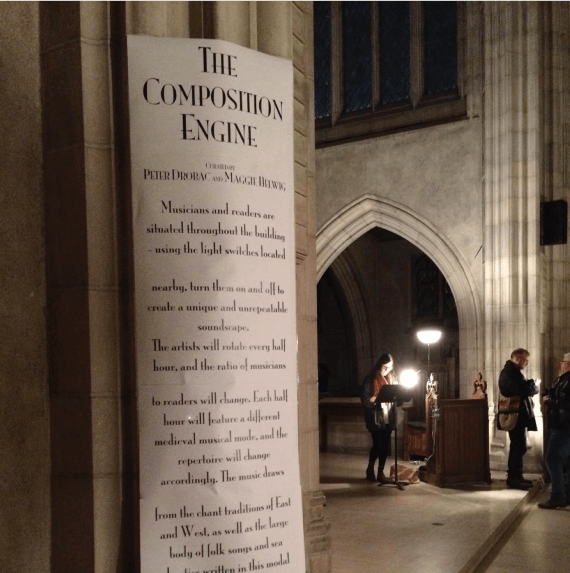 THE
COMPOSITION
ENGINE
CURATED BY
PETER DROBAC AND MAGGIE HELWIG
Musicians and readers are
situated throughout the building
- using the light switches located
nearby, turn them on and off to
create a unique and unrepeatable
soundscape.
The artists will rotate every half
hour, and the ratio of musicians
to readers will change. Each half
hour will feature a different
medieval musical mode, and the
repertoire will change
accordingly. The music draws
from the chant traditions of East
and West, as well as the large
body of folk songs and sea
written in this modal